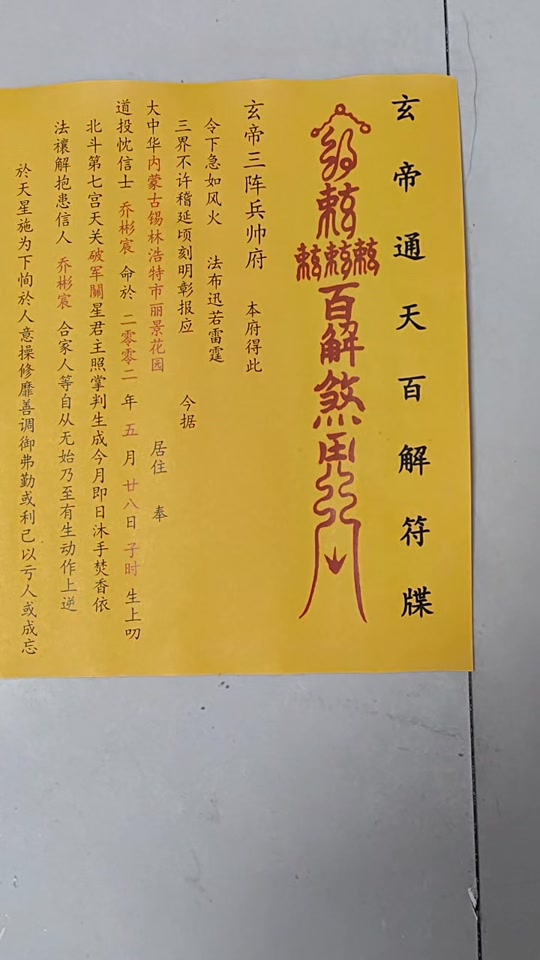 玄帝通天百解符牒
百解煞
玄帝三阵兵帅府 本府得此
令下急如风火 法布迅若雷霆
三界不许稽延顷刻明彰报应 今据
大中华内蒙古锡林浩特市丽景花园 居住 奉
道投忱信士 乔彬宸 命於 二零零二 年 五 月 廿八日 子时 生上叨
北斗第七宫天关破军關星君主照掌判生成今月即日沐手焚香依
法禳解抱患信人 乔彬宸 合家人等自从无始乃至有生动作上逆
於天星施为下恂於人意操修靡善调御弗勤或利己以亏人或成忘